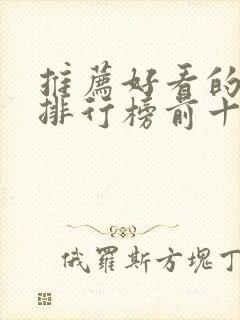 推薦好看的
排行榜前十
俄羅斯方塊丁